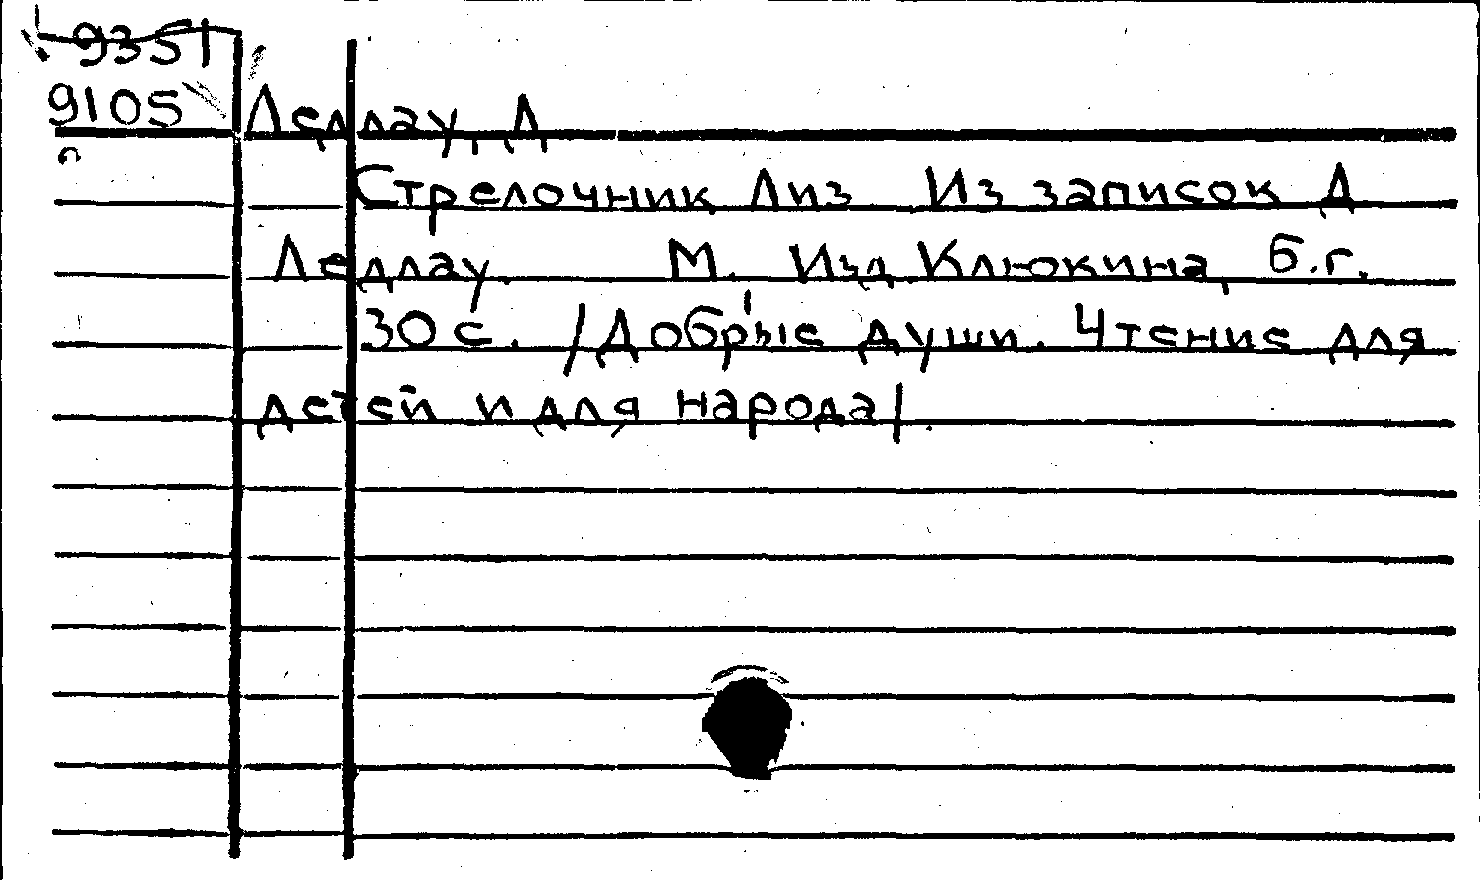 9351
9105 Ледлау, Д
Стрелочник Лиз Из записок Д
Ледлау. М. Изд Клюкина, б.г.
30 с. /Добрые души. Чтение для
детей и для народа/.